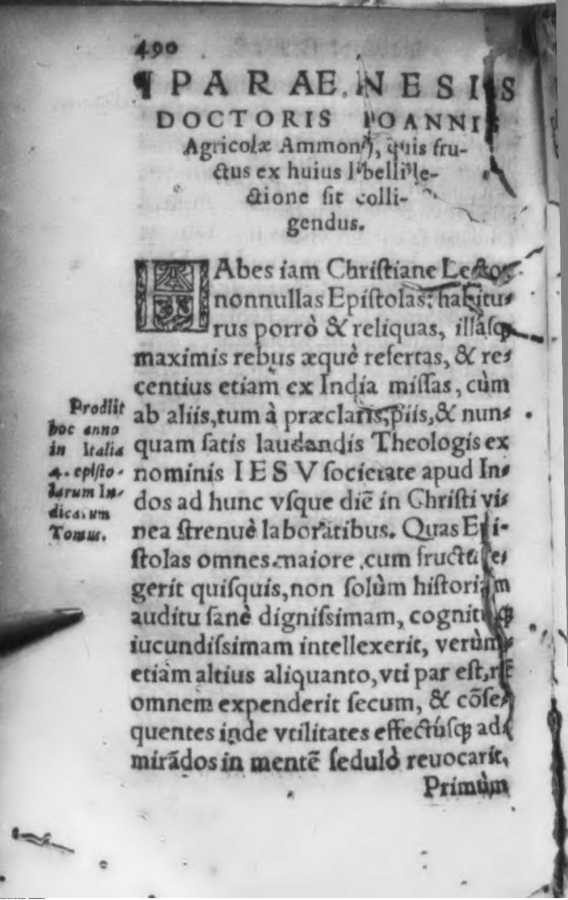 490
¶ PARAENESIS
DOCTORIS IOANNIS
Agricolæ Ammonij, quis fru-
ctus ex huius libelli le-
ctione sit colli-
gendus.
HAbes iam Christiane Lector
nonnullas Epistolas: habitu-
rus porrò & reliquas, illasq̃
maximis rebus æquè refertas, & re-
centius etiam ex India missas, cùm
ab aliis, tum à præclaris, piis, & nun-
quam satis laudandis Theologis ex
nominis IESV societate apud In-
dos ad hunc vsque diẽ in Christi vi-
nea strenuè laborãtibus. Quas Epi-
stolas omnes maiore cum fructu le-
gerit quisquis, non solùm historiam
auditu sanè dignissimam, cognituq̃
iucundissimam intellexerit, verùm
etiam altius aliquanto, vti par est, rẽ
omnem expenderit secum, & cõse-
quentes inde vtilitates effectúsq̃ ad-
mirãdos in mentẽ sedulò reuocarit.
Primùm
Prodiit
hoc anno
in Italia
4. episto-
larum In-
dicarum
Tomus.